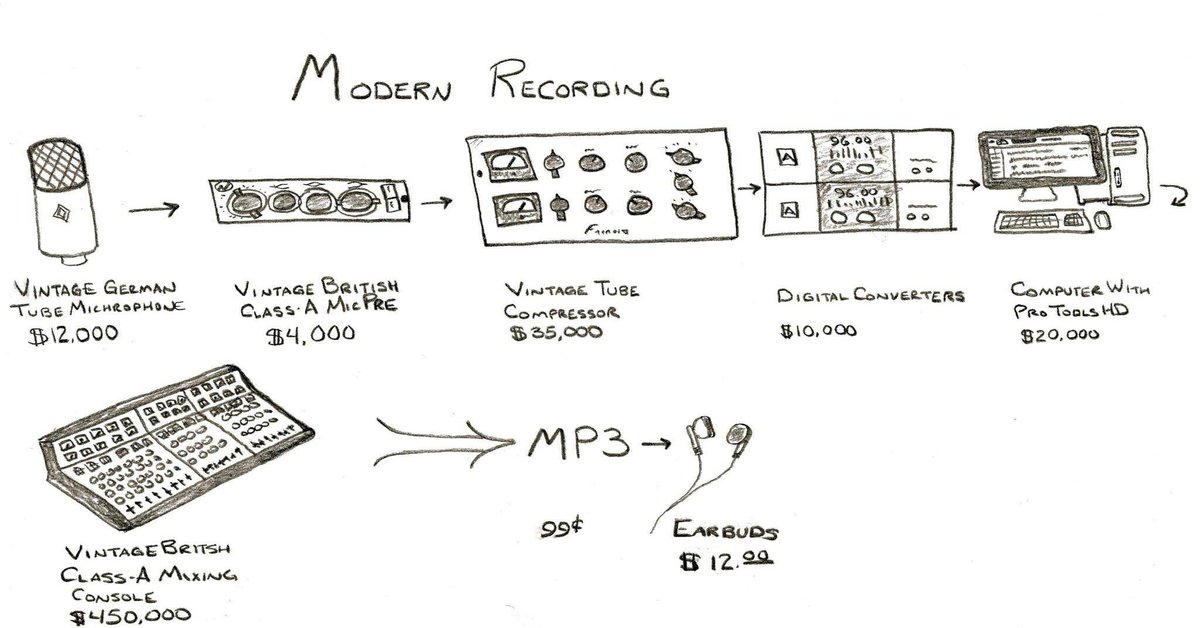 MODERN RECORDING
VINTAGE GERMAN
TUBE MICHROPHONE
$12,000
VINTAGE BRITISH
CLASS-A MICPRE
$4,000
VINTAGE TUBE
COMPRESSOR
$35,000
DIGITAL CONVERTERS
$10,000
COMPUTER WITH
PRO TOOLS HD
$20,000
A
96.00
A
96.00
VINTAGE BRITSH
CLASS-A MIXING
CONSOLE
$450,000
MP3
99¢
EARBUDS
$12.00